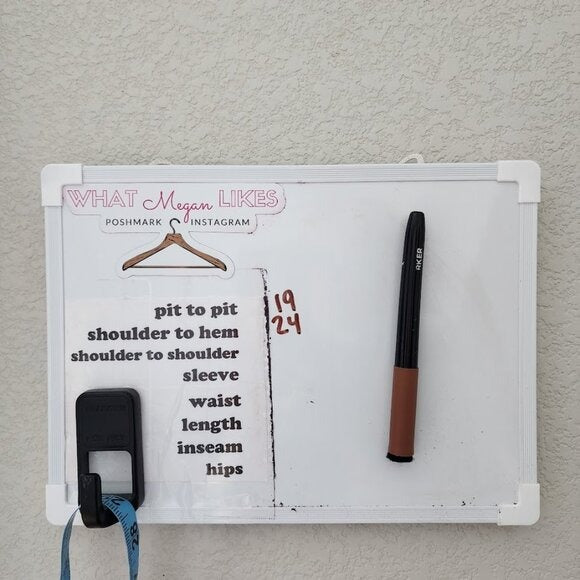 WHAT Megan LIKES
POSHMARK INSTAGRAM
pit to pit 19
shoulder to hem 24
shoulder to shoulder
sleeve
waist
length
inseam
hips
RKER